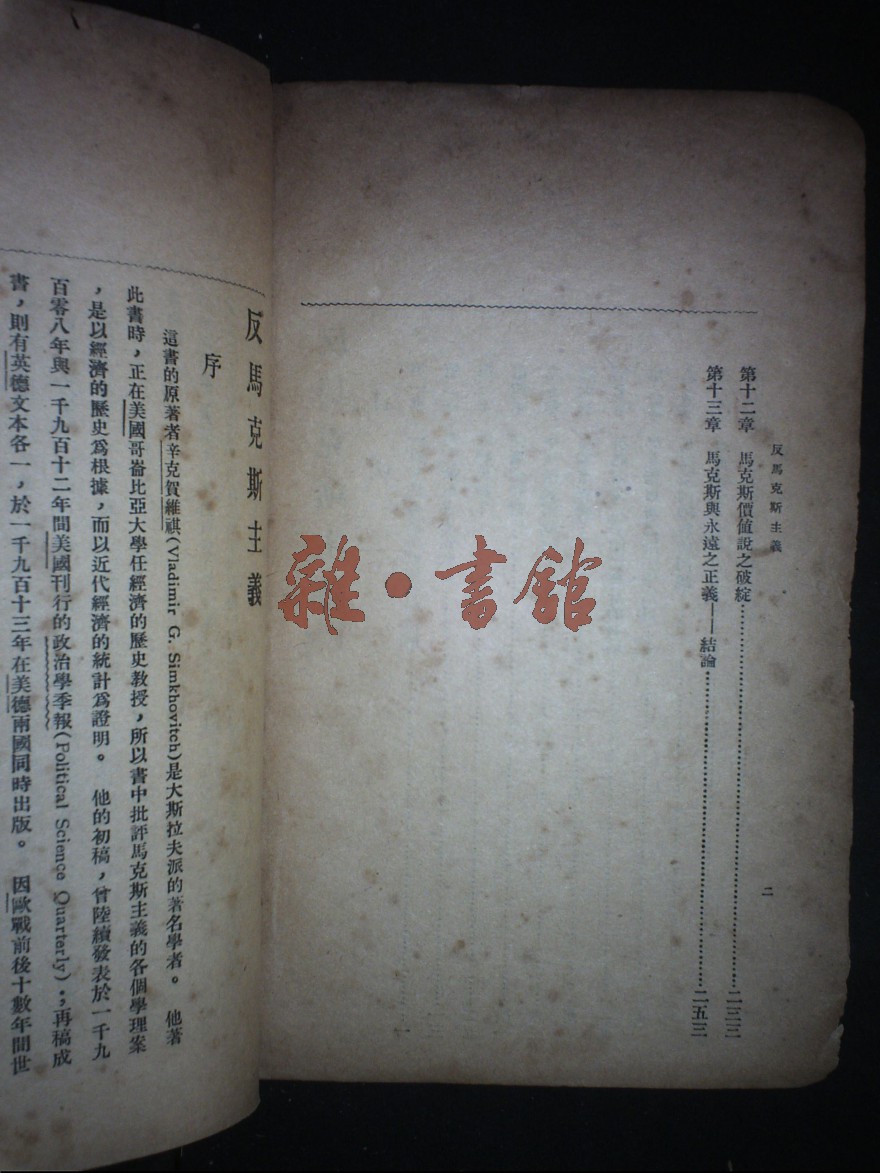 反馬克斯主義
二
第十二章　馬克斯價值說之破綻……………………二三三
第十三章　馬克斯與永遠之正義——結論……………………二五三
雜·書館
反馬克斯主義
序
這書的原著者辛克賀維祺(Vladimir G. Simkhovitch)是大斯拉夫派的著名學者。　他著
此書時，正在美國哥崙比亞大學任經濟的歷史教授，所以書中批評馬克斯主義的各個學理案
，是以經濟的歷史爲根據，而以近代經濟的統計爲證明。　他的初稿，曾陸續發表於一千九
百零八年與一千九百十二年間美國刊行的政治學季報(Political Science Quarterly)，；再稿成
書，則有英德文本各一，於一千九百十三年在美德兩國同時出版。　因歐戰前後十數年間世